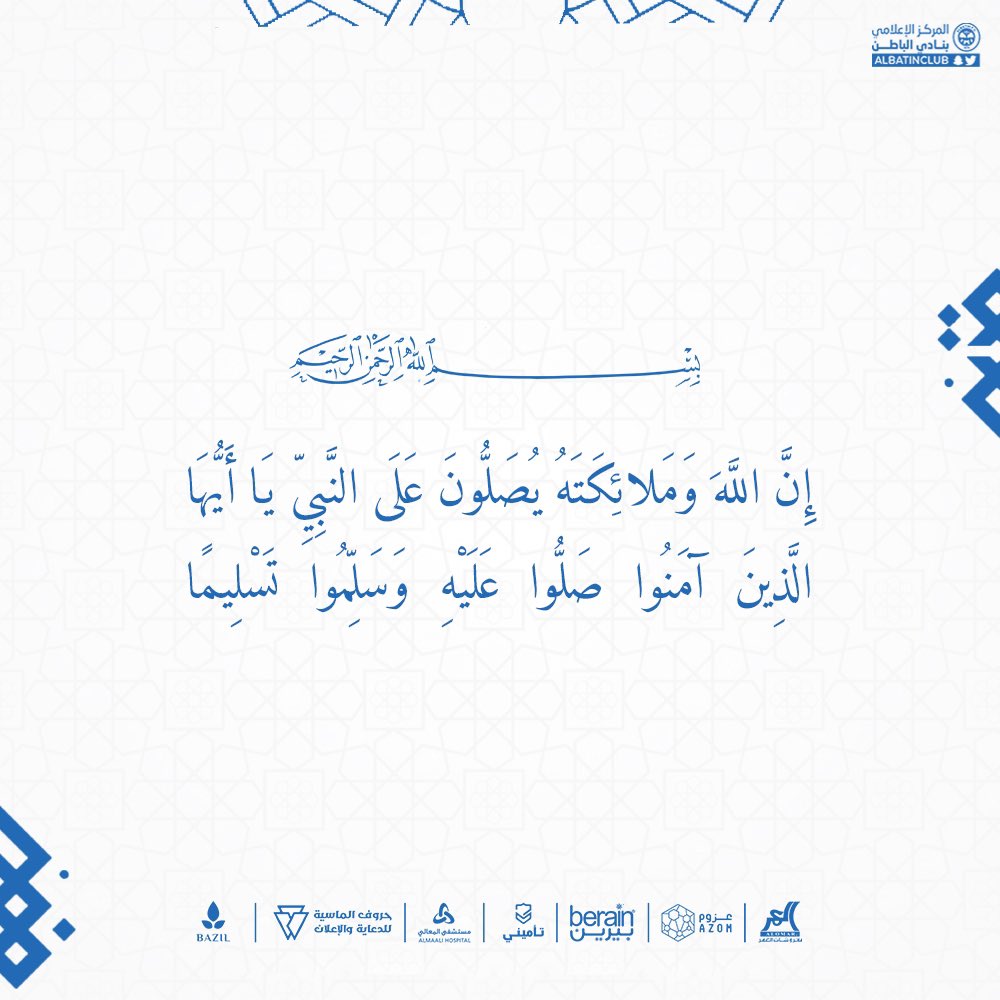 المركز الإعلامي
بنادي الباطن
ALBATINCLUB
بِسْمِ اللهِ الرَّحْمَنِ الرَّحِيمِ
إِنَّ اللَّهَ وَمَلائِكَتَهُ يُصَلُّونَ عَلَى النَّبِيِّ يَا أَيُّهَا
الَّذِينَ آمَنُوا صَلُّوا عَلَيْهِ وَسَلِّمُوا تَسْلِيمًا
ALOMAR
عزوم
AZOM
berain
بيرين
تأميني
مستشفى المعالي
ALMAALI HOSPITAL
حروف الماسية
للدعاية والإعلان
BAZIL